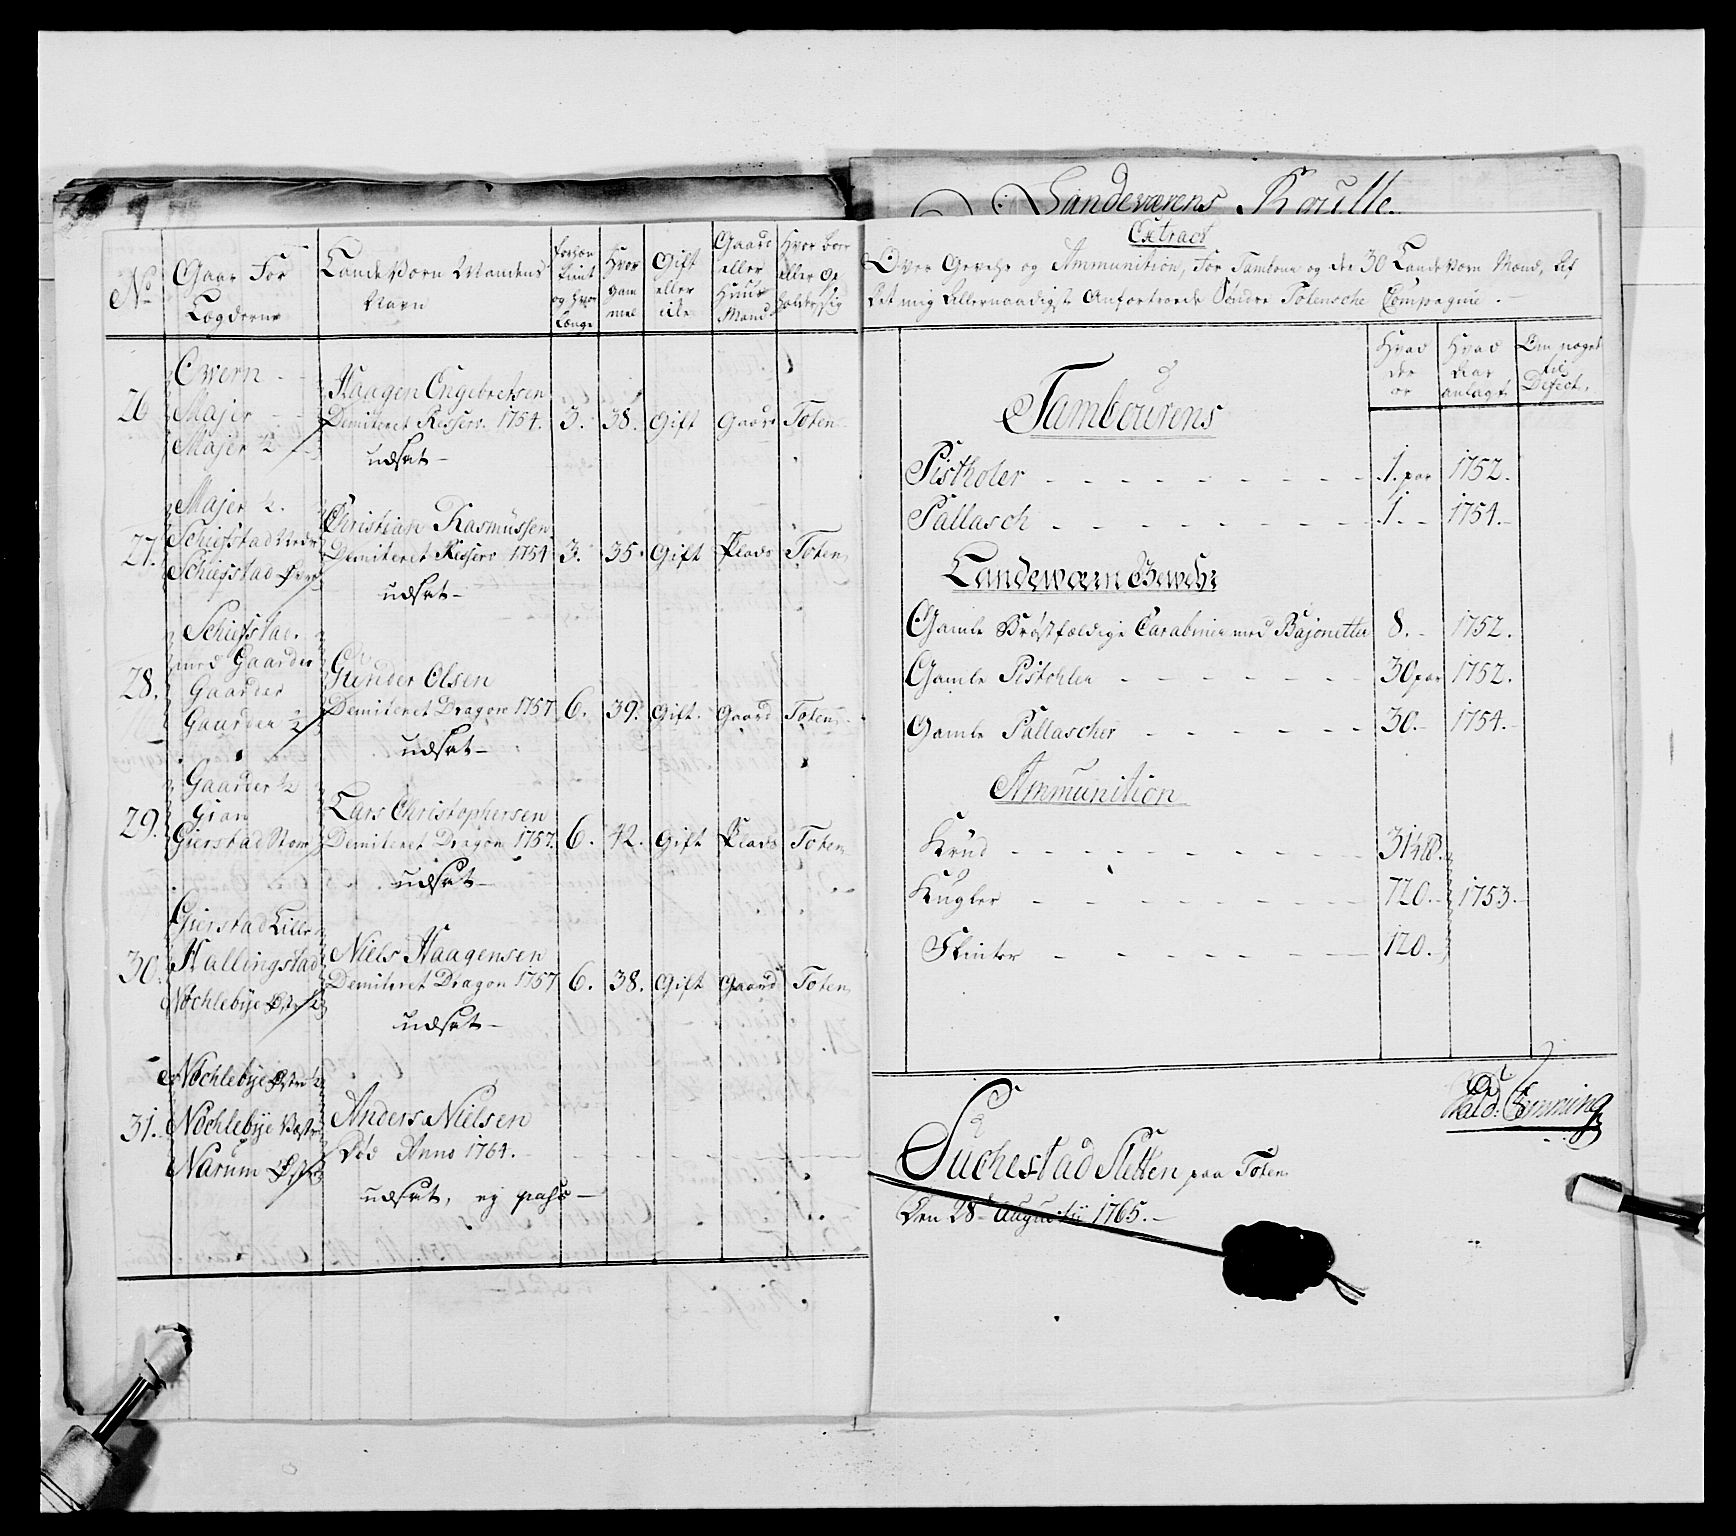 No
Gaar For
Lægderne
Landevorn Mandens
Navn
og hvor
Længe
Hvor
gam
mel
Gift
eller
Gaard
eller
Huus
Mand
Hvor boer
eller op
holder sig
26
Owern
Majer
Majer ½
Haagen Engebretsen
Demiteret Reserv. 1754.
udsat
3.
38.
Gift
Gaard
Toten
27.
Majer ½.
Schiefstad
Schiefstad
Christian Rasmussen
Demiteret Reserv 1754
udsat
3.
35.
Gift
Plads
Toten
28.
Schiefstad
med Gaarder
Gaarder
Gaarder ½
Gunder Olsen
Demiteret Dragon 1757
udsat
6.
39.
Gift.
Gaard
Toten
29.
Gaarder ½
Gierstad
Lars Christophersen
Demiteret Dragon 1757.
udsat
6.
42.
Gift
Plads
Toten
30.
Gierstad Lille
Hallingstad
Nøchlebye
Niels Haagensen
Demiteret Dragon 1757
udsat
6.
38.
Gift
Gaard
Toten
31.
Nøchlebye
Nøchlebye
Narum
Anders Nielsen
Død Anno 1764.
udsat, ey
Landeværens Roulle
Extract
Over Gevehr og Ammunition, for Tambour og de 30 Landevorn Mænd, af
det mig Allernaadigst Anfortroede Søndre Totenske Compagnie.
Hvad
der
er
Hvad
Aar
anlagt
Om noget
til
Defect.
Tambourens
Pistholer 1. par 1752.
Pallasch 1 1754.
Landeworn Gewehr
Gamle Carabiner med Bajonetter 8. 1752.
Gamle Pistohler 30 par 1752.
Gamle Pallascher 30. 1754.
Ammunition
Krud
Kugler 720. 1753.
Flinter 120.
Suchestad Sletten paa Toten
Den 28 Augustij 1765.